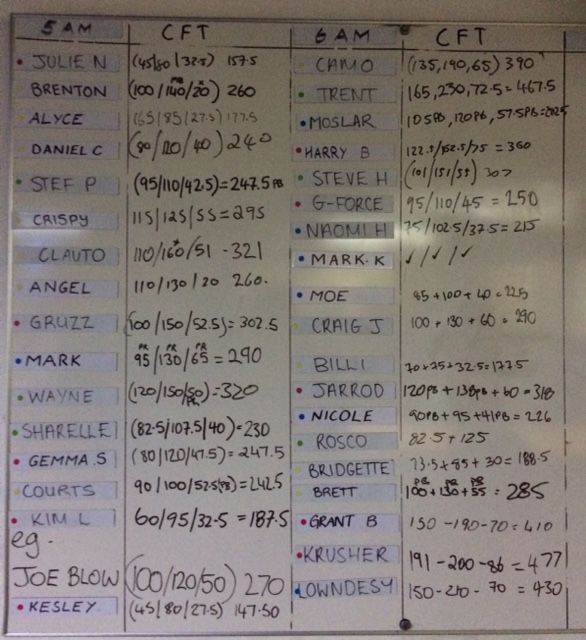 5 AM CFT
JULIE N (45/80/32.5) 157.5
PR
BRENTON (100/140/20) 260
ALYCE (65/85/27.5) 177.5
DANIEL C (80/120/40) 240
STEF P (95/110/42.5) = 247.5 PB
CRISPY 115/125/55 = 295
CLAUTO 110/160/51 - 321
ANGEL 110/130/20 260.
GRUZZ (100/150/52.5) = 302.5
PR PR PR
MARK 95/130/65 = 290
WAYNE (120/150/50) = 320
PR
SHARELLE (82.5/107.5/40) = 230
GEMMA.S (80/120/47.5) = 247.5
COURTS 90/100/52.5(PB) = 242.5
KIM L 60/95/32.5 = 187.5
eg.
JOE BLOW (100/120/50) 270
KESLEY (45/80/27.5) 147.50
6 AM CFT
CAMO (135, 190, 65) 390
TRENT 165, 230, 72.5 = 467.5
MOSLAR 105PB, 120PB, 57.5PB =
HARRY B 122.5/152.5/75 = 350
STEVE H (101/151/55) 307
G-FORCE 95/110/45 = 250
NAOMI H 75/102.5/37.5 = 215
MARK.K ✓/✓/✓
MOE 85+100+40 = 225
CRAIG J 100 + 130 + 60 = 290
BILLI 70+75+32.5 = 177.5
JARROD 120PB + 138PB + 60 = 318
NICOLE 90PB + 95 + 41PB = 226
ROSCO 82.5 + 125
BRIDGETTE 73.5 + 85 + 30 = 188.5
PB PB PB
BRETT 100 + 130 + 55 = 285
GRANT B 150 - 190 - 70 = 410
KRUSHER 191 - 200 - 86 = 477
LOWNDESY 150 - 210 - 70 = 430